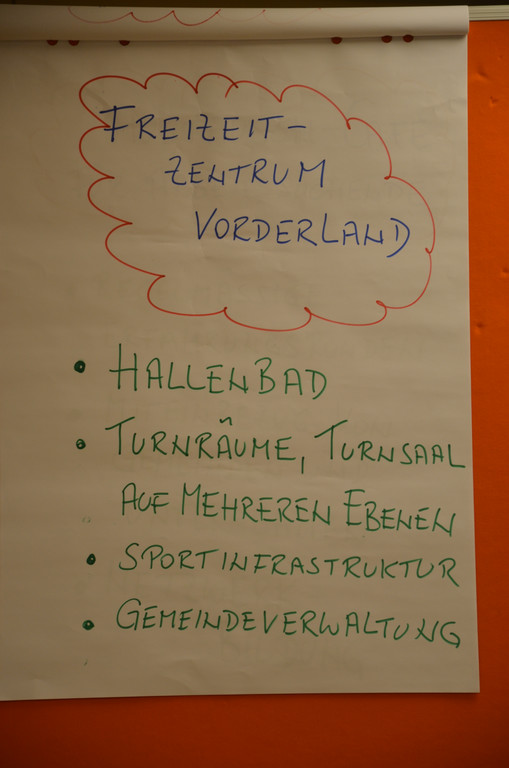 FREIZEIT-
ZENTRUM
VORDERLAND
• HALLENBAD
• TURNRÄUME, TURNSAAL
AUF MEHREREN EBENEN
• SPORTINFRASTRUKTUR
• GEMEINDEVERWALTUNG